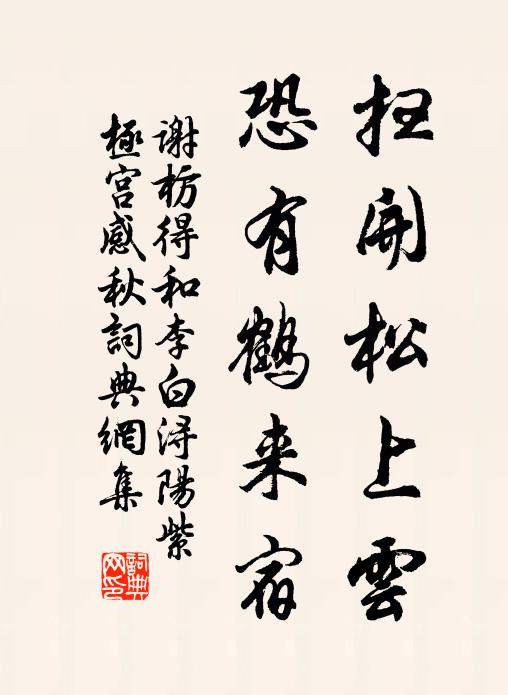 扫開松上雲
恐有鶴来宿
谢枋得和李白浔陽紫
極宫感秋詞典網集
詞典网印